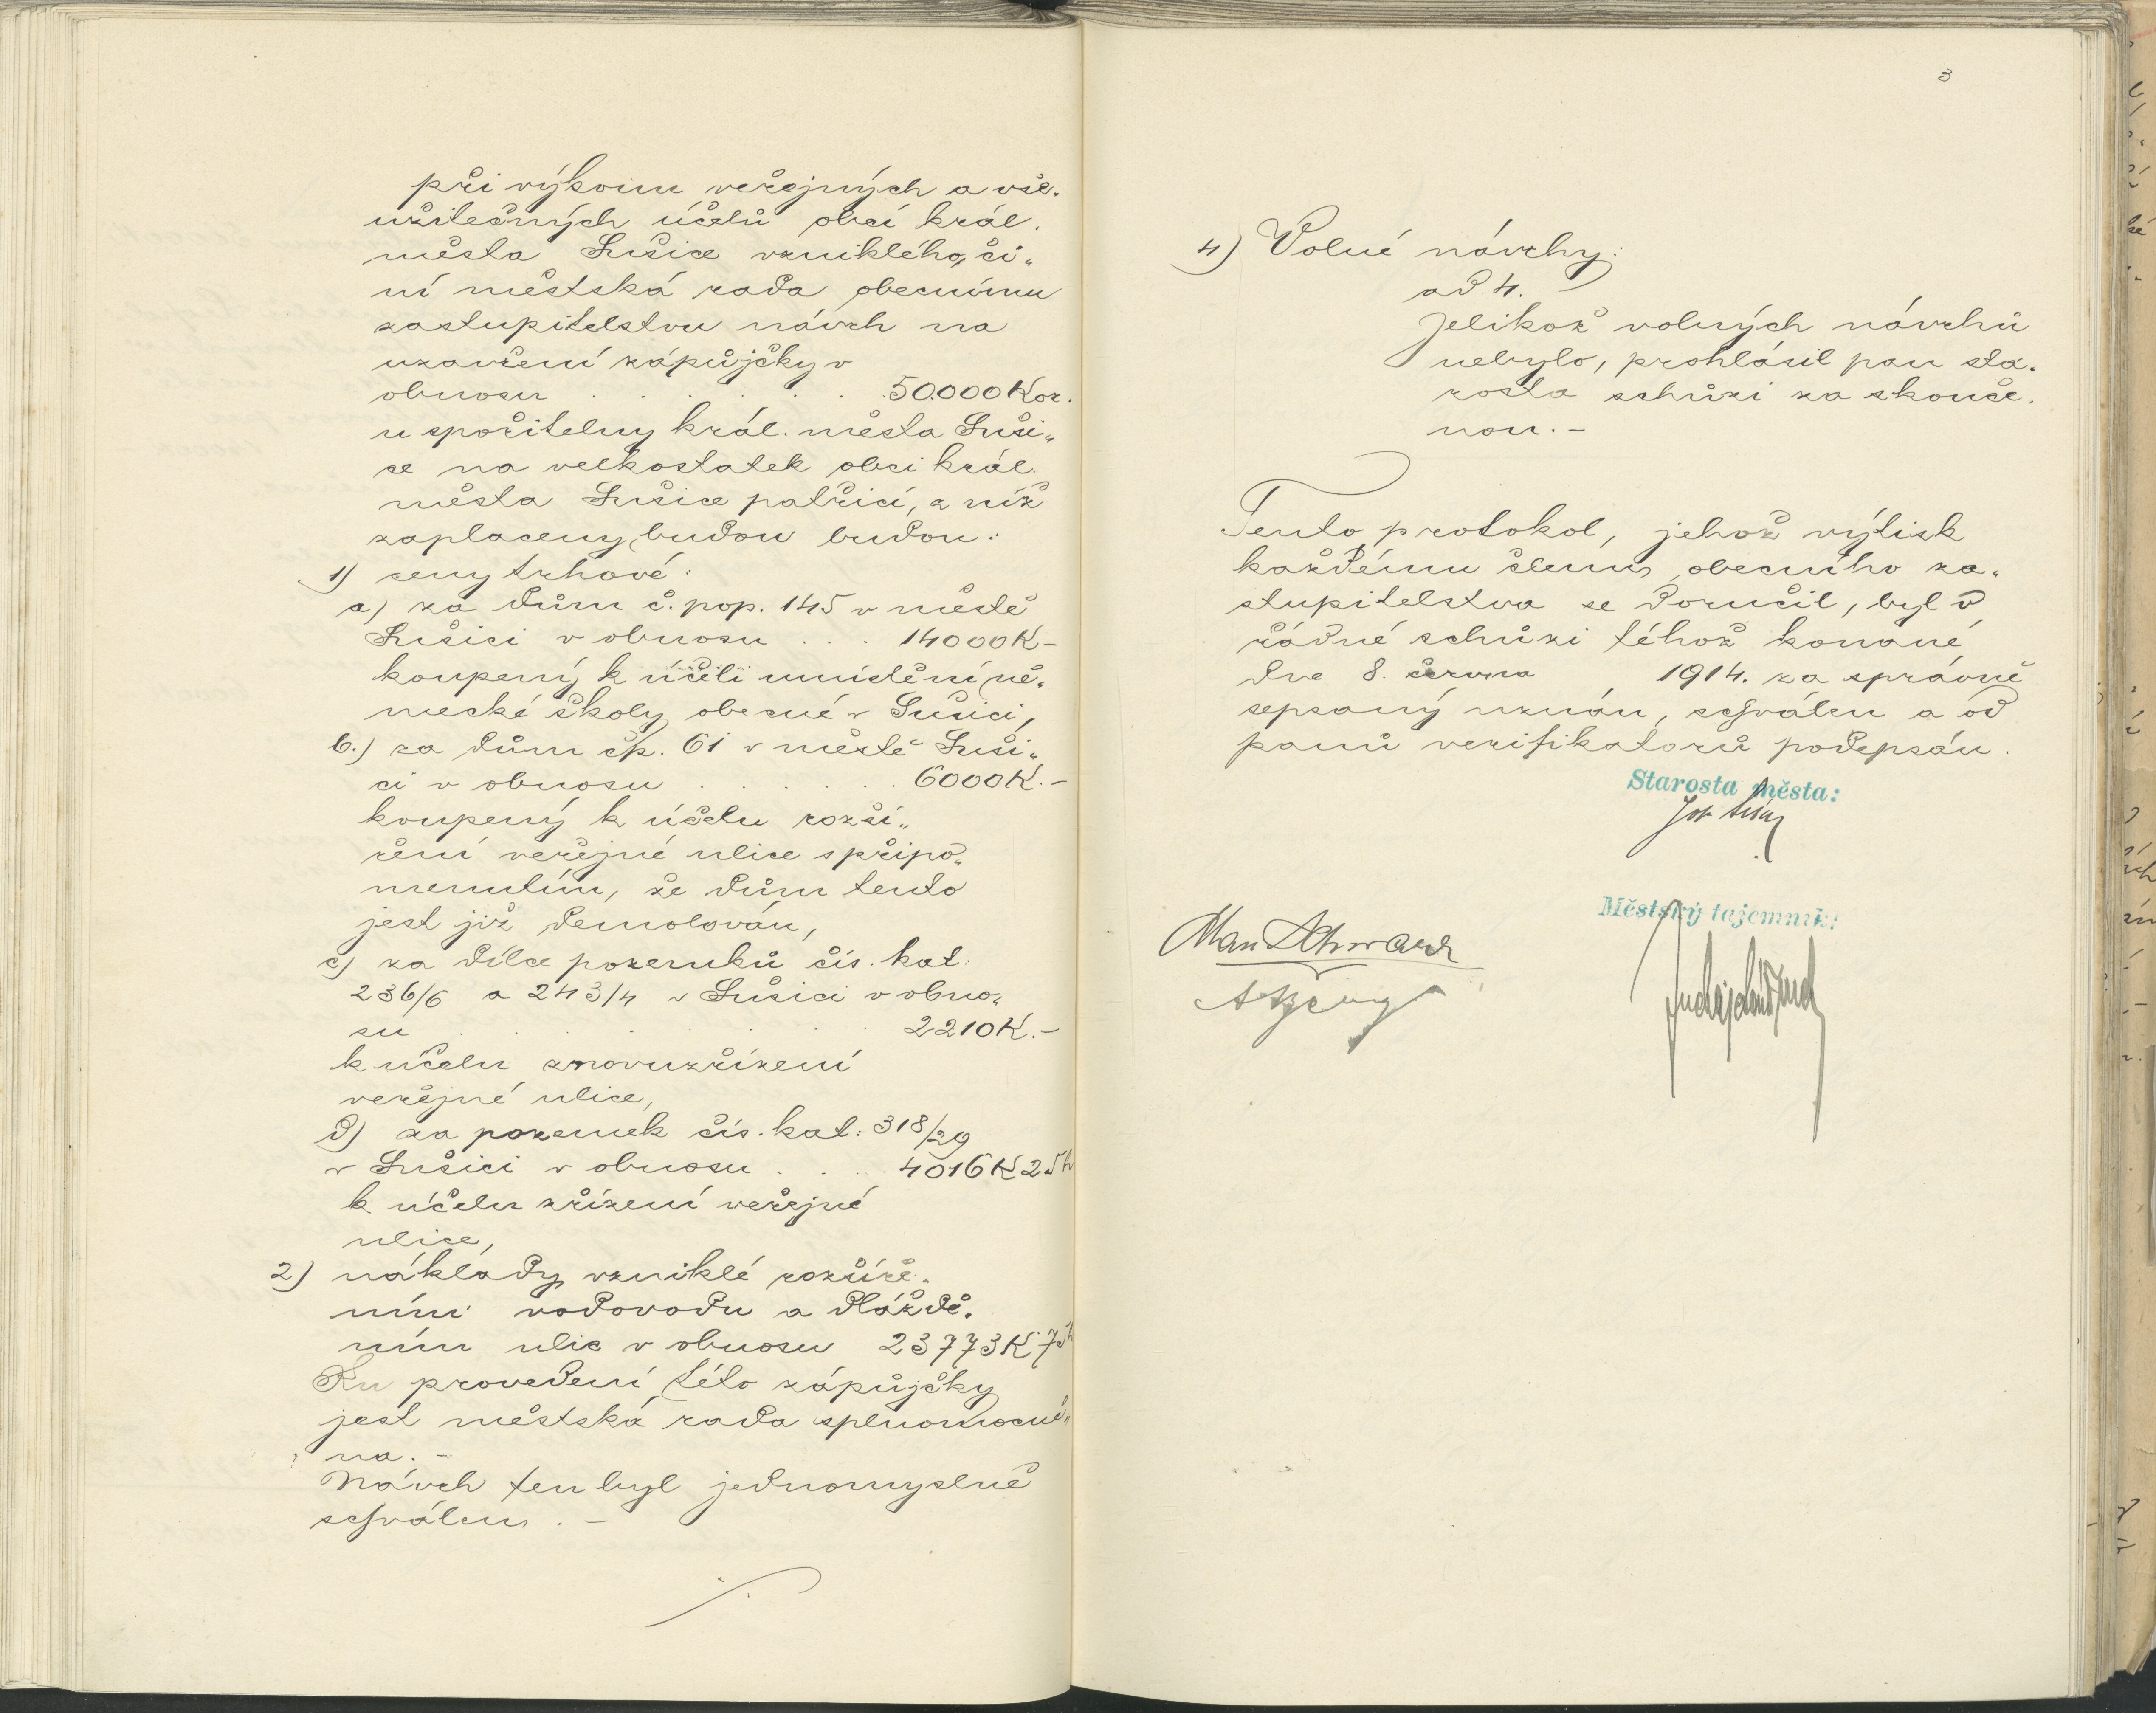 při výkonu veřejných a vše„
užitečných účelů obcí král.
města Sušice vzniklého, či„
ní městská rada obecnímu
zastupitelstvu návrh na
uzavření zápůjčky v
obnosu . . . . . . 50.000 Kor.
u spořitelny král. města Suši„
ce na velkostatek obci král.
města Sušice patřící, z níž
zaplaceny budou budou:
1) ceny trhové:
a) za dům č. pop. 145 v městě
Sušici v obnosu . . . 14000 K –
koupený k účeli umístění ně„
mecké školy obecné v Sušici,
b.) za dům čp. 61 v městě Suši„
ci v obnosu . . . . . 6000 K. –
koupený k účelu rozší„
ření veřejné ulice s připo„
menutím, že dům tento
jest již demolován,
c) za dílce pozemků čís. kat:
236/6 a 243/4 v Sušici v obno„
su . . . . . . . 2210 K. –
k účelu znovuzřízení
veřejné ulice,
d) za pozemek čís. kat: 318/29
v Sušici v obnosu . . . . 4016 K 25 h
k účelu zřízení veřejné
ulice,
2) náklady vzniklé rozšíře„
ním vodovodu a dláždě„
ním ulic v obnosu 23773 K 75 h
Ku provedení této zápůjčky
jest městská rada splnomocně„
na. –
Návrh ten byl jednomyslně
schválen. –
3
4) Volné návrhy:
ad 4.
Jelikož volných návrhů
nebylo, prohlásil pan sta„
rosta schůzi za skonče„
nou. –
Tento protokol, jehož výtisk
každému členu obecního za„
stupitelstva se doručil, byl v
řádné schůzi téhož konané
dne 8. června 1914. za správně
sepsaný uznán, schválen a od
panů verifikatorů podepsán.
Starosta města:
Městský tajemník: